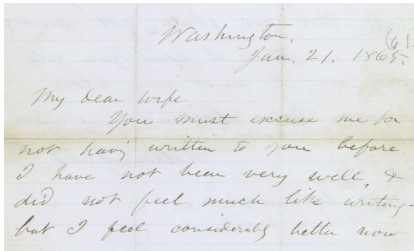 Washington.
Jan. 21. 1865.
My dear wife.
You must excuse me for
not havig written to you before
I have not been very well, &
did not feel much like writing-
but I feel considerably better now